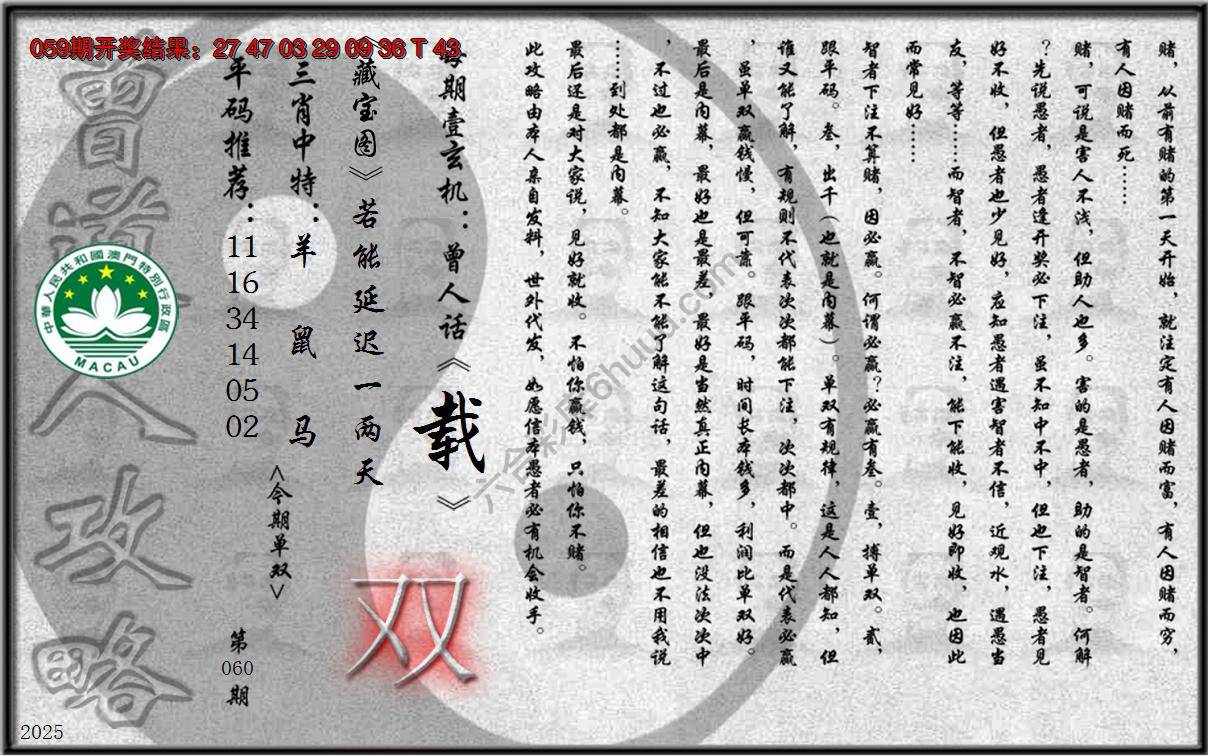 059期开奖结果：27 47 03 29 09 36 T 43
赌，从前有赌的第一天开始，就注定有人因赌而富，有人因赌而穷，
有人因赌而死……
赌，可说是害人不浅，但助人也多。害的是愚者，助的是智者。何解
？先说愚者，愚者逢开奖必下注，虽不知中不中，但也下注，愚者见
好不收，但愚者也少见好，应知愚者遇害智者不信，近观水，遇愚当
友，等等……而智者，不智必赢不注，能下能收，见好即收，也因此
而常见好……
智者下注不算赌，因必赢。何谓必赢？必赢有叁。壹，搏单双。贰，
跟平码。叁，出千（也就是内幕）。单双有规律，这是人人都知，但
谁又能了解，有规则不代表次次都能下注，次次都中。而是代表必赢
，虽单双赢钱慢，但可靠。跟平码，时间长本钱多，利润比单双好。
最后是内幕，最好也是最差。最好是当然真正内幕，但也没法次次中
，不过也必赢，不知大家能不能了解这句话，最差的相信也不用我说
……到处都是内幕。
最后还是对大家说，见好就收。不怕你赢钱，只怕你不赌。
此攻略由本人亲自发料，世外代发，如愿信本愚者必有机会收手。
每期壹玄机：曾人话《载》
《藏宝图》若能延迟一两天
三肖中特：羊 鼠 马
平码推荐：11 16 34 14 05 02
<今期单双>
双
第060期
曾道人攻略
中華人民共和國澳門特別行政區
MACAU
六合彩库6huuu.com
2025